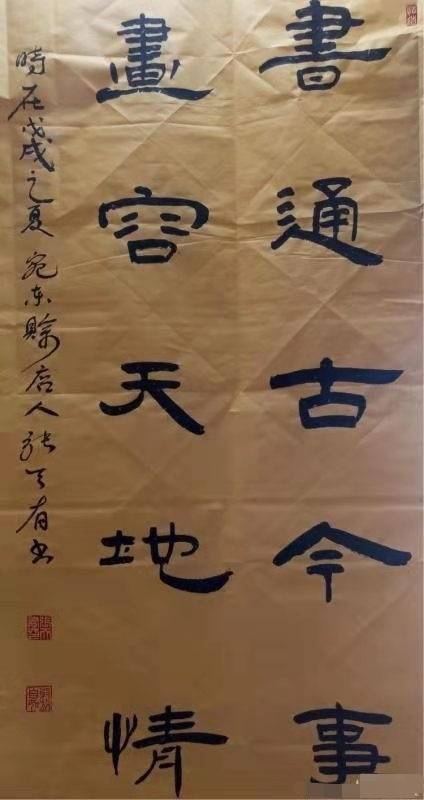 書通古今事
畫容天地情
時在戊戌之夏宛東賒店人張天有書